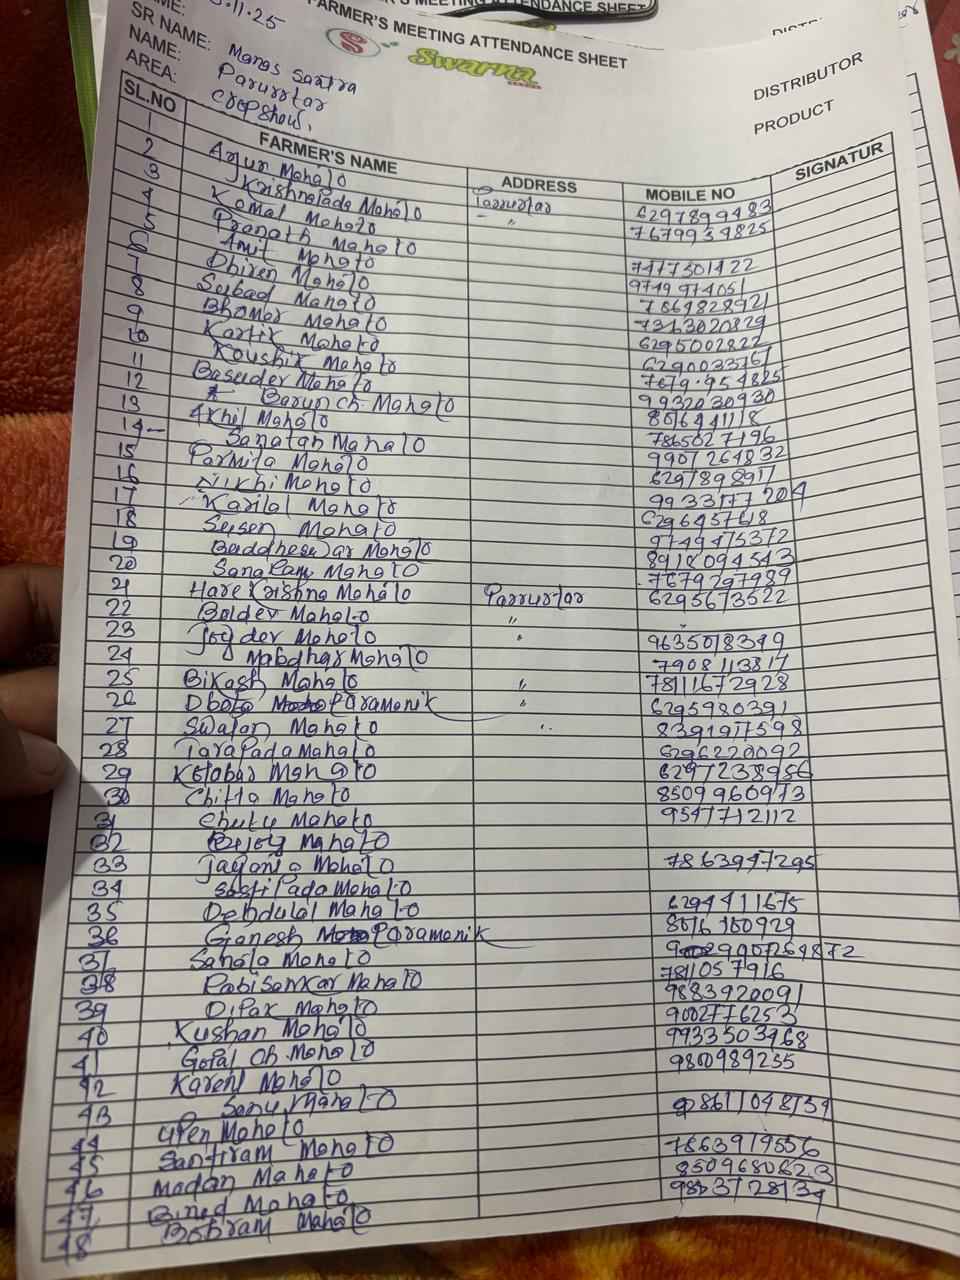 MEETING ATTENDANCE SHEET
FARMER'S MEETING ATTENDANCE SHEET
.11.25
SR NAME: Manas Santra
NAME: Parurotar
AREA: Cropshow,
Swarna
DISTRIBUTOR
PRODUCT
SL.NO FARMER'S NAME ADDRESS MOBILE NO SIGNATUR
1 Arjun Mahato Parrurotar 6297899483
2 Krishnapada Mahato - " 7679934825
3 Komal Mahato
4 Pranath Mahato 7477301422
5 Amit Mahato 9749974051
6 Dhiren Mahato 7864828921
7 Subad Mahato 7313020829
8 Bhomer Mahato 6295002822
9 Kartik Mahato 6290033767
10 Koushik Mahato 7679.954825
11 Basudev Mahato 9932030930
12 Barun ch Mahato 8016441118
13 Akhil Mahato 7865027196
14 Sanatan Mahato 9907264832
15 Parmita Mahato 6297898917
16 Nikhi Mahato 9933177204
17 Karilal Mahato 6296457618
18 Susen Mahato 9749475372
19 Buddheswar Mahato 8918094543
20 Sangram Mahato 7679297989
21 Hare Krishna Mahato Parrurotar 6295673522
22 Boldev Mahato "
23 Joydev Mahato " 9635018349
24 Nabdhar Mahato 7908113817
25 Bikash Mahato " 78111672928
26 Paramonik " 6295980391
27 Swapan Mahato " 8391977598
28 Tarapada Mahato 6296220092
29 Mahato 6297238956
30 Chitta Mahato 8509960973
31 Mahato 9547712112
32 Bijoy Mahato
33 Jayanta Mahato 7863947295
34 Sastipada Mahato
35 Debdulal Mahato 6294411675
36 Ganesh Paramonik 8016180929
37 Mahato
38 Rabisankar Mahato 7811057916
39 Dipak Mahato 9883920091
40 Kushan Mahato 9002776253
41 Gopal Ch. Mahato 9933503468
42 Mahato 9800989235
43 Sonu Mahato
44 Upen Mahato
45 Santiram Mahato 7863919556
46 Madan Mahato
47 Binod Mahato
48 Mahato